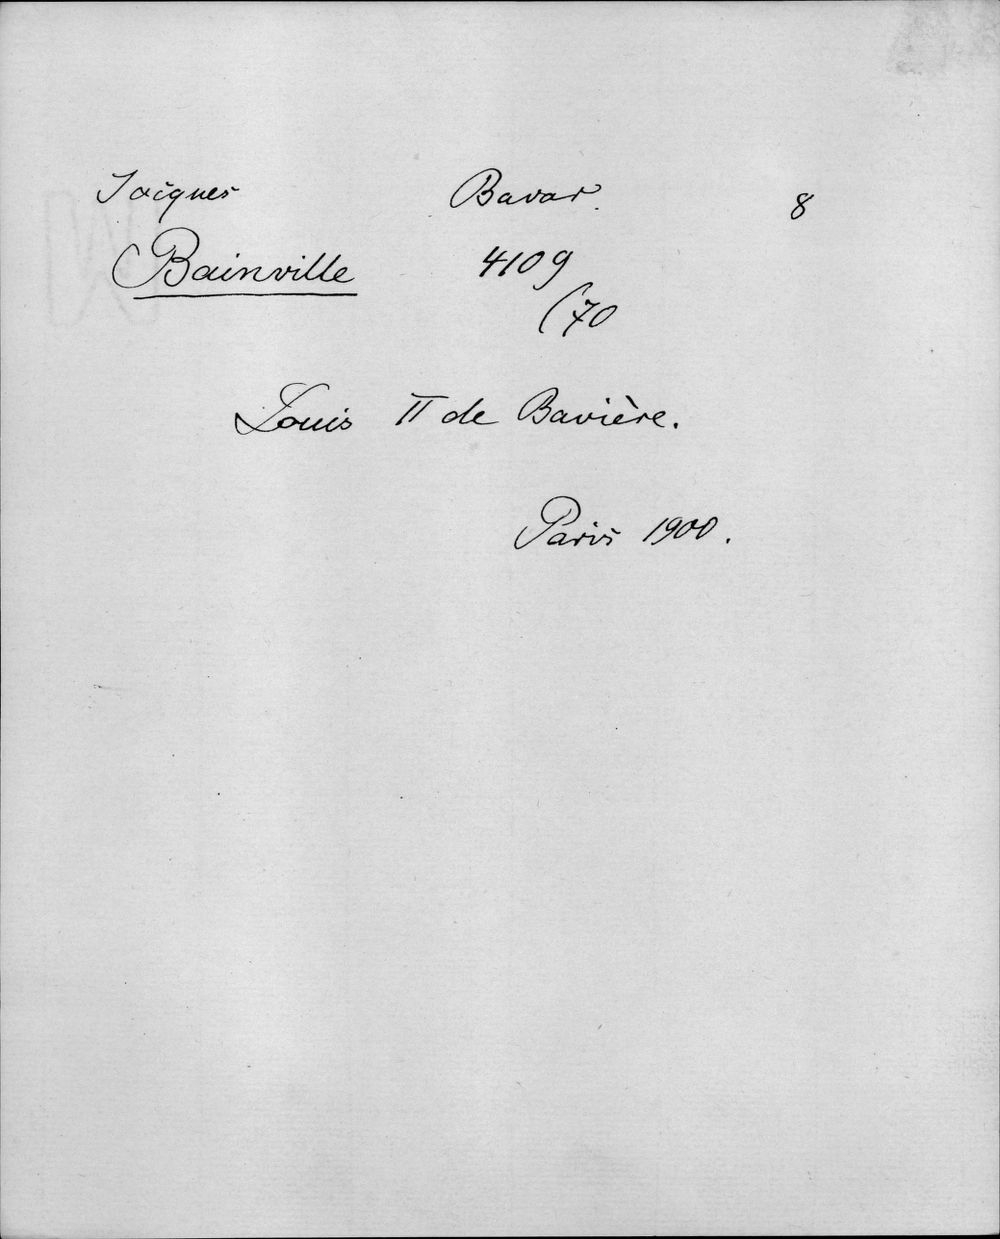 Jacques Bavar. 8
Bainville 4109
(70
Louis II de Bavière.
Paris 1900.